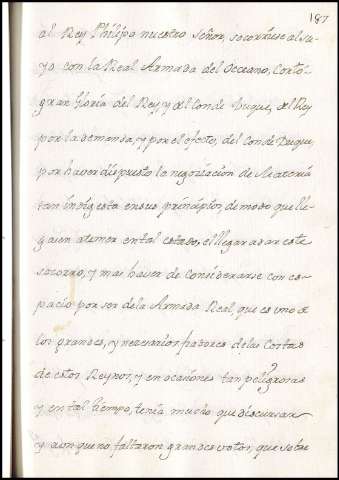 187
al Rey Philipa nuestro Señor, socorriese al su-
yo con la Real Armada del Occeano, Costó
gran gloria del Rey, y del Conde Duque, del Rey
por la demanda, y por el efecto, del Conde Duque,
por haver dispuesto la negoziacion de Materia
tan indigesta en sus principios, de modo que lle-
gasen a temer en tal estado, el llegar a dar este
socorro, y mas haver de considerarse con es-
pacio por ser de la Armada Real, que es uno de
los grandes, y necesarios fiadores de las Costas
de estos Reynos, y en ocasiones tan peligrosas
y en tal tiempo, tenia mucho que discurrirse
y aunque no faltaron grandes votos, que sobre